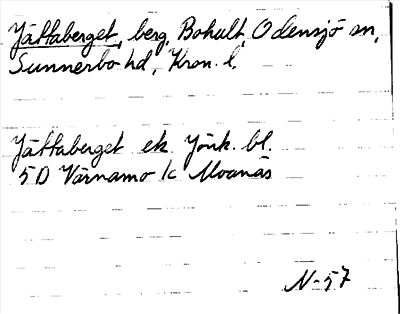 Jättaberget, berg, Bohult, Odensjö sn,
Sunnerbo hd, Kron. l.
Jättaberget ek Jönk. bl.
5D Värnamo k Moanäs
N-57